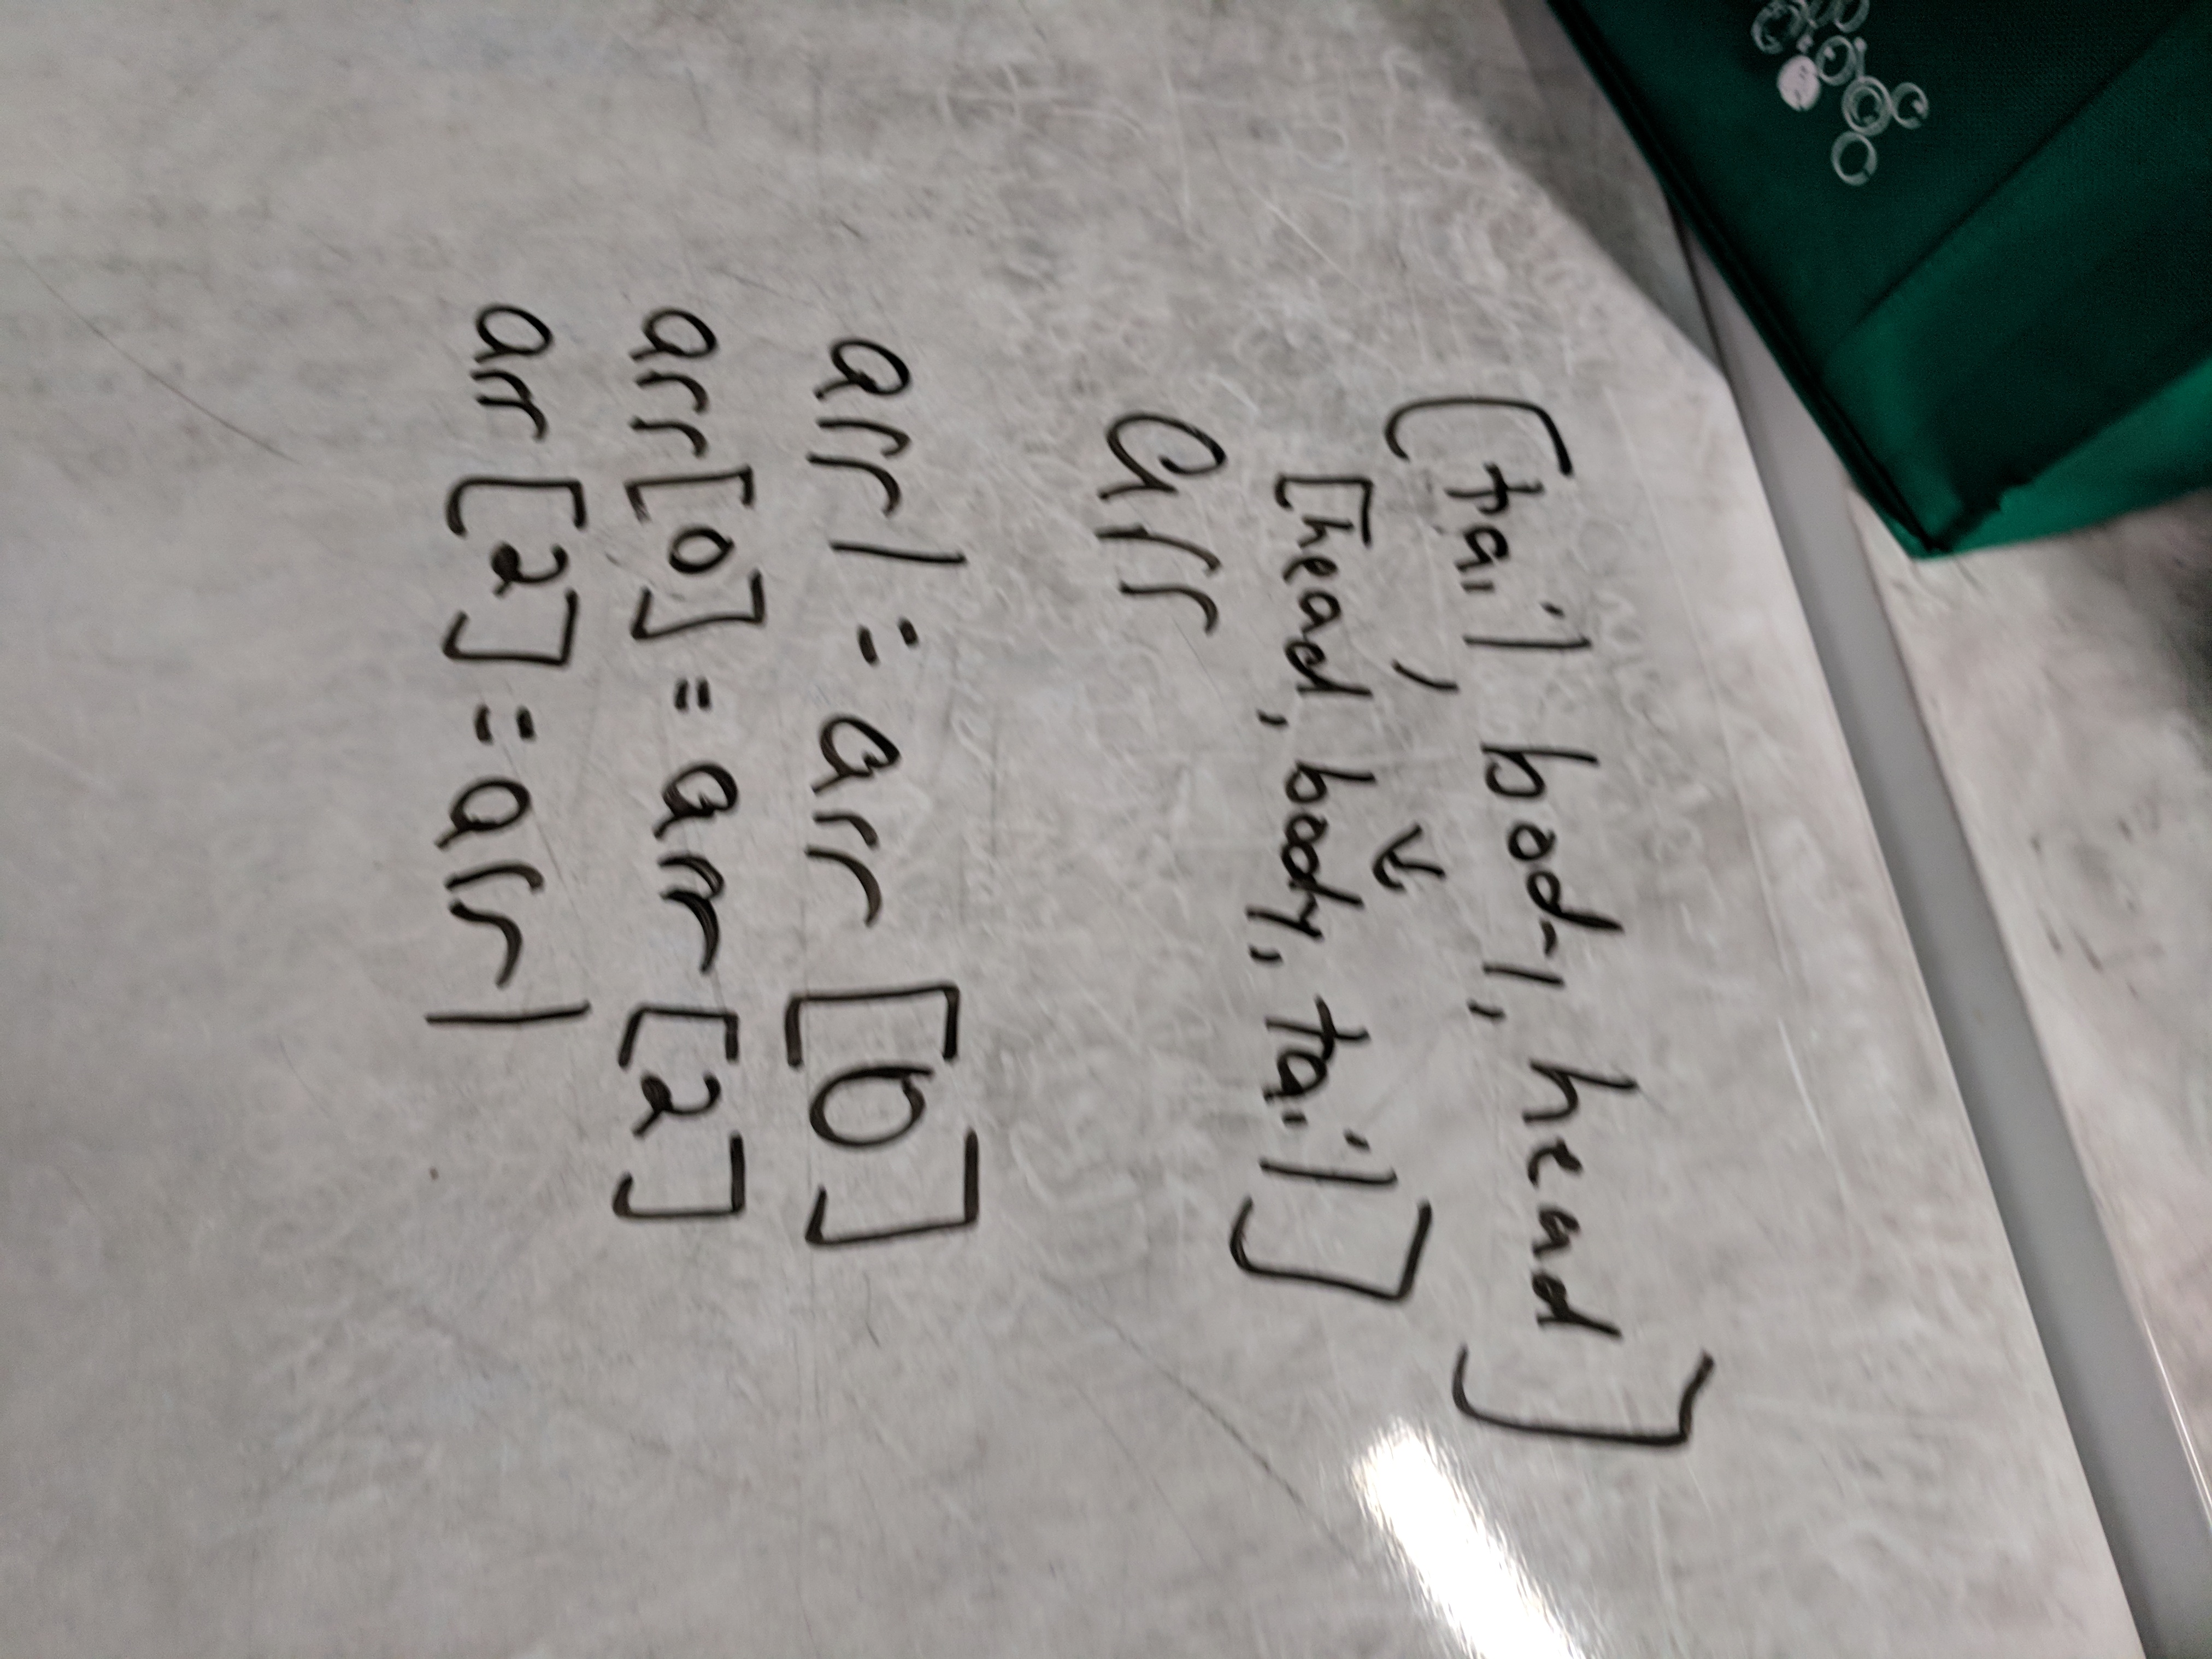 [tail, body, head]
[head, body, tail]
arr
arr1 = arr [0]
arr[0] = arr [2]
arr [2] = arr1